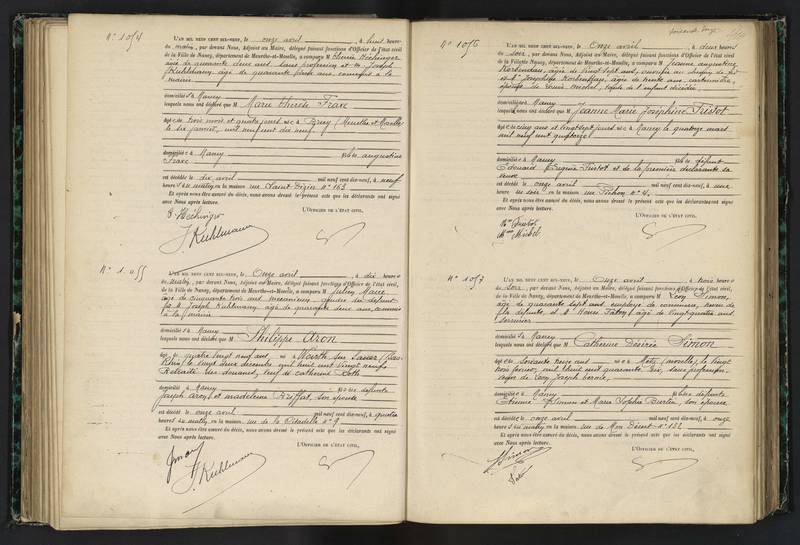 N° 1054
L'AN MIL NEUF CENT DIX-NEUF, le onze avril, à huit heures
du matin, par devant Nous, Adjoint au Maire, délégué faisant fonctions d'Officier de l'état civil
de la Ville de Nancy, département de Meurthe-et-Moselle, a comparu M
âgée de quarante deux ans, sans profession et M. Joseph
Kuhlmann, âgé de quarante
mairie
domiciliés à Nancy
lesquels nous ont déclaré que M Marie Thérèse Fraxe
âgée de trois mois et quatre jours née à Briey (Meurthe et Moselle)
le six janvier, mil neuf cent dix neuf
domiciliée à Nancy fille de augustine
Fraxe
est décédée le dix avril mil neuf cent dix-neuf, à neuf
heures du matin, en la maison rue Saint Dizier n° 163
Et après nous être assuré du décès, nous avons dressé le présent acte que les déclarants ont signé
avec Nous après lecture.
L'OFFICIER DE L'ÉTAT CIVIL,
J. Kuhlmann
N° 1055
L'AN MIL NEUF CENT DIX-NEUF, le onze avril, à dix heures
du matin, par devant Nous, Adjoint au Maire, délégué faisant fonctions d'Officier de l'état civil,
de la Ville de Nancy, département de Meurthe-et-Moselle, a comparu M Julien
âgé de cinquante trois ans mécanicien gendre du défunt
et M. Joseph Kuhlmann âgé de quarante deux ans,
à la mairie
domiciliés à Nancy
lesquels nous ont déclaré que M Philippe Aron
âgé de quatre vingt neuf ans, né à Woerth sur Sauer (Bas
Rhin) le vingt deux décembre mil huit cent vingt neuf
Retraité des douanes, veuf de catherine
domicilié à Nancy fils de défunts
Joseph aron et madeleine, son épouse
est décédé le onze avril mil neuf cent dix-neuf, à quatre
heures du matin, en la maison rue de la Citadelle n° 9
Et après nous être assuré du décès, nous avons dressé le présent acte que les déclarants ont signé
avec Nous après lecture.
L'OFFICIER DE L'ÉTAT CIVIL,
J. Kuhlmann
N° 1056
L'AN MIL NEUF CENT DIX-NEUF, le Onze avril, à deux heures
du soir, par devant Nous, Adjoint au Maire, délégué faisant fonctions d'Officier de l'état civil,
de la Ville de Nancy, département de Meurthe-et-Moselle, a comparu M Jeanne augustine
âgée de vingt sept ans, employée au chemin de fer
et M Joséphine, âgée de trente ans, cartonnière,
épouse de Louis Michel, tante de l'enfant décédée
domiciliées à Nancy
lesquels nous ont déclaré que M Jeanne Marie Joséphine Tristot
âgée de cinq ans et vingt sept jours née à Nancy le quatorze mars
mil neuf cent quatorze
domiciliée à Nancy fille de défunt
Edouard Eugène Tristot et de la première déclarante sa
veuve
est décédée le onze avril mil neuf cent dix-neuf, à une
heure du soir, en la maison rue Pichon n° 4
Et après nous être assuré du décès, nous avons dressé le présent acte que les déclarantes ont signé
avec Nous après lecture.
L'OFFICIER DE L'ÉTAT CIVIL,
Mme Tristot
Mme Michel
N° 1057
L'AN MIL NEUF CENT DIX-NEUF, le Onze avril, à trois heures
du soir, par devant Nous, Adjoint au Maire, délégué faisant fonctions d'Officier de l'état civil,
de la Ville de Nancy, département de Meurthe-et-Moselle, a comparu M Léon Simon,
âgé de quarante sept ans, employé de commerce, neveu de
la défunte, et M Henri, âgé de vingt quatre ans
serrurier
domiciliés à Nancy
lesquels nous ont déclaré que M Catherine Désirée Simon
âgée de soixante treize ans née à Metz (moselle), le vingt
trois février, mil huit cent quarante six, sans profession
veuve de Joseph
domiciliée à Nancy fille de défunts
Etienne Simon et Marie Sophie Bertin, son épouse
est décédée le onze avril mil neuf cent dix-neuf, à onze
heures du matin, en la maison rue de Mon Désert n° 132
Et après nous être assuré du décès, nous avons dressé le présent acte que les déclarants ont signé
avec Nous après lecture.
L'OFFICIER DE L'ÉTAT CIVIL,
Simon